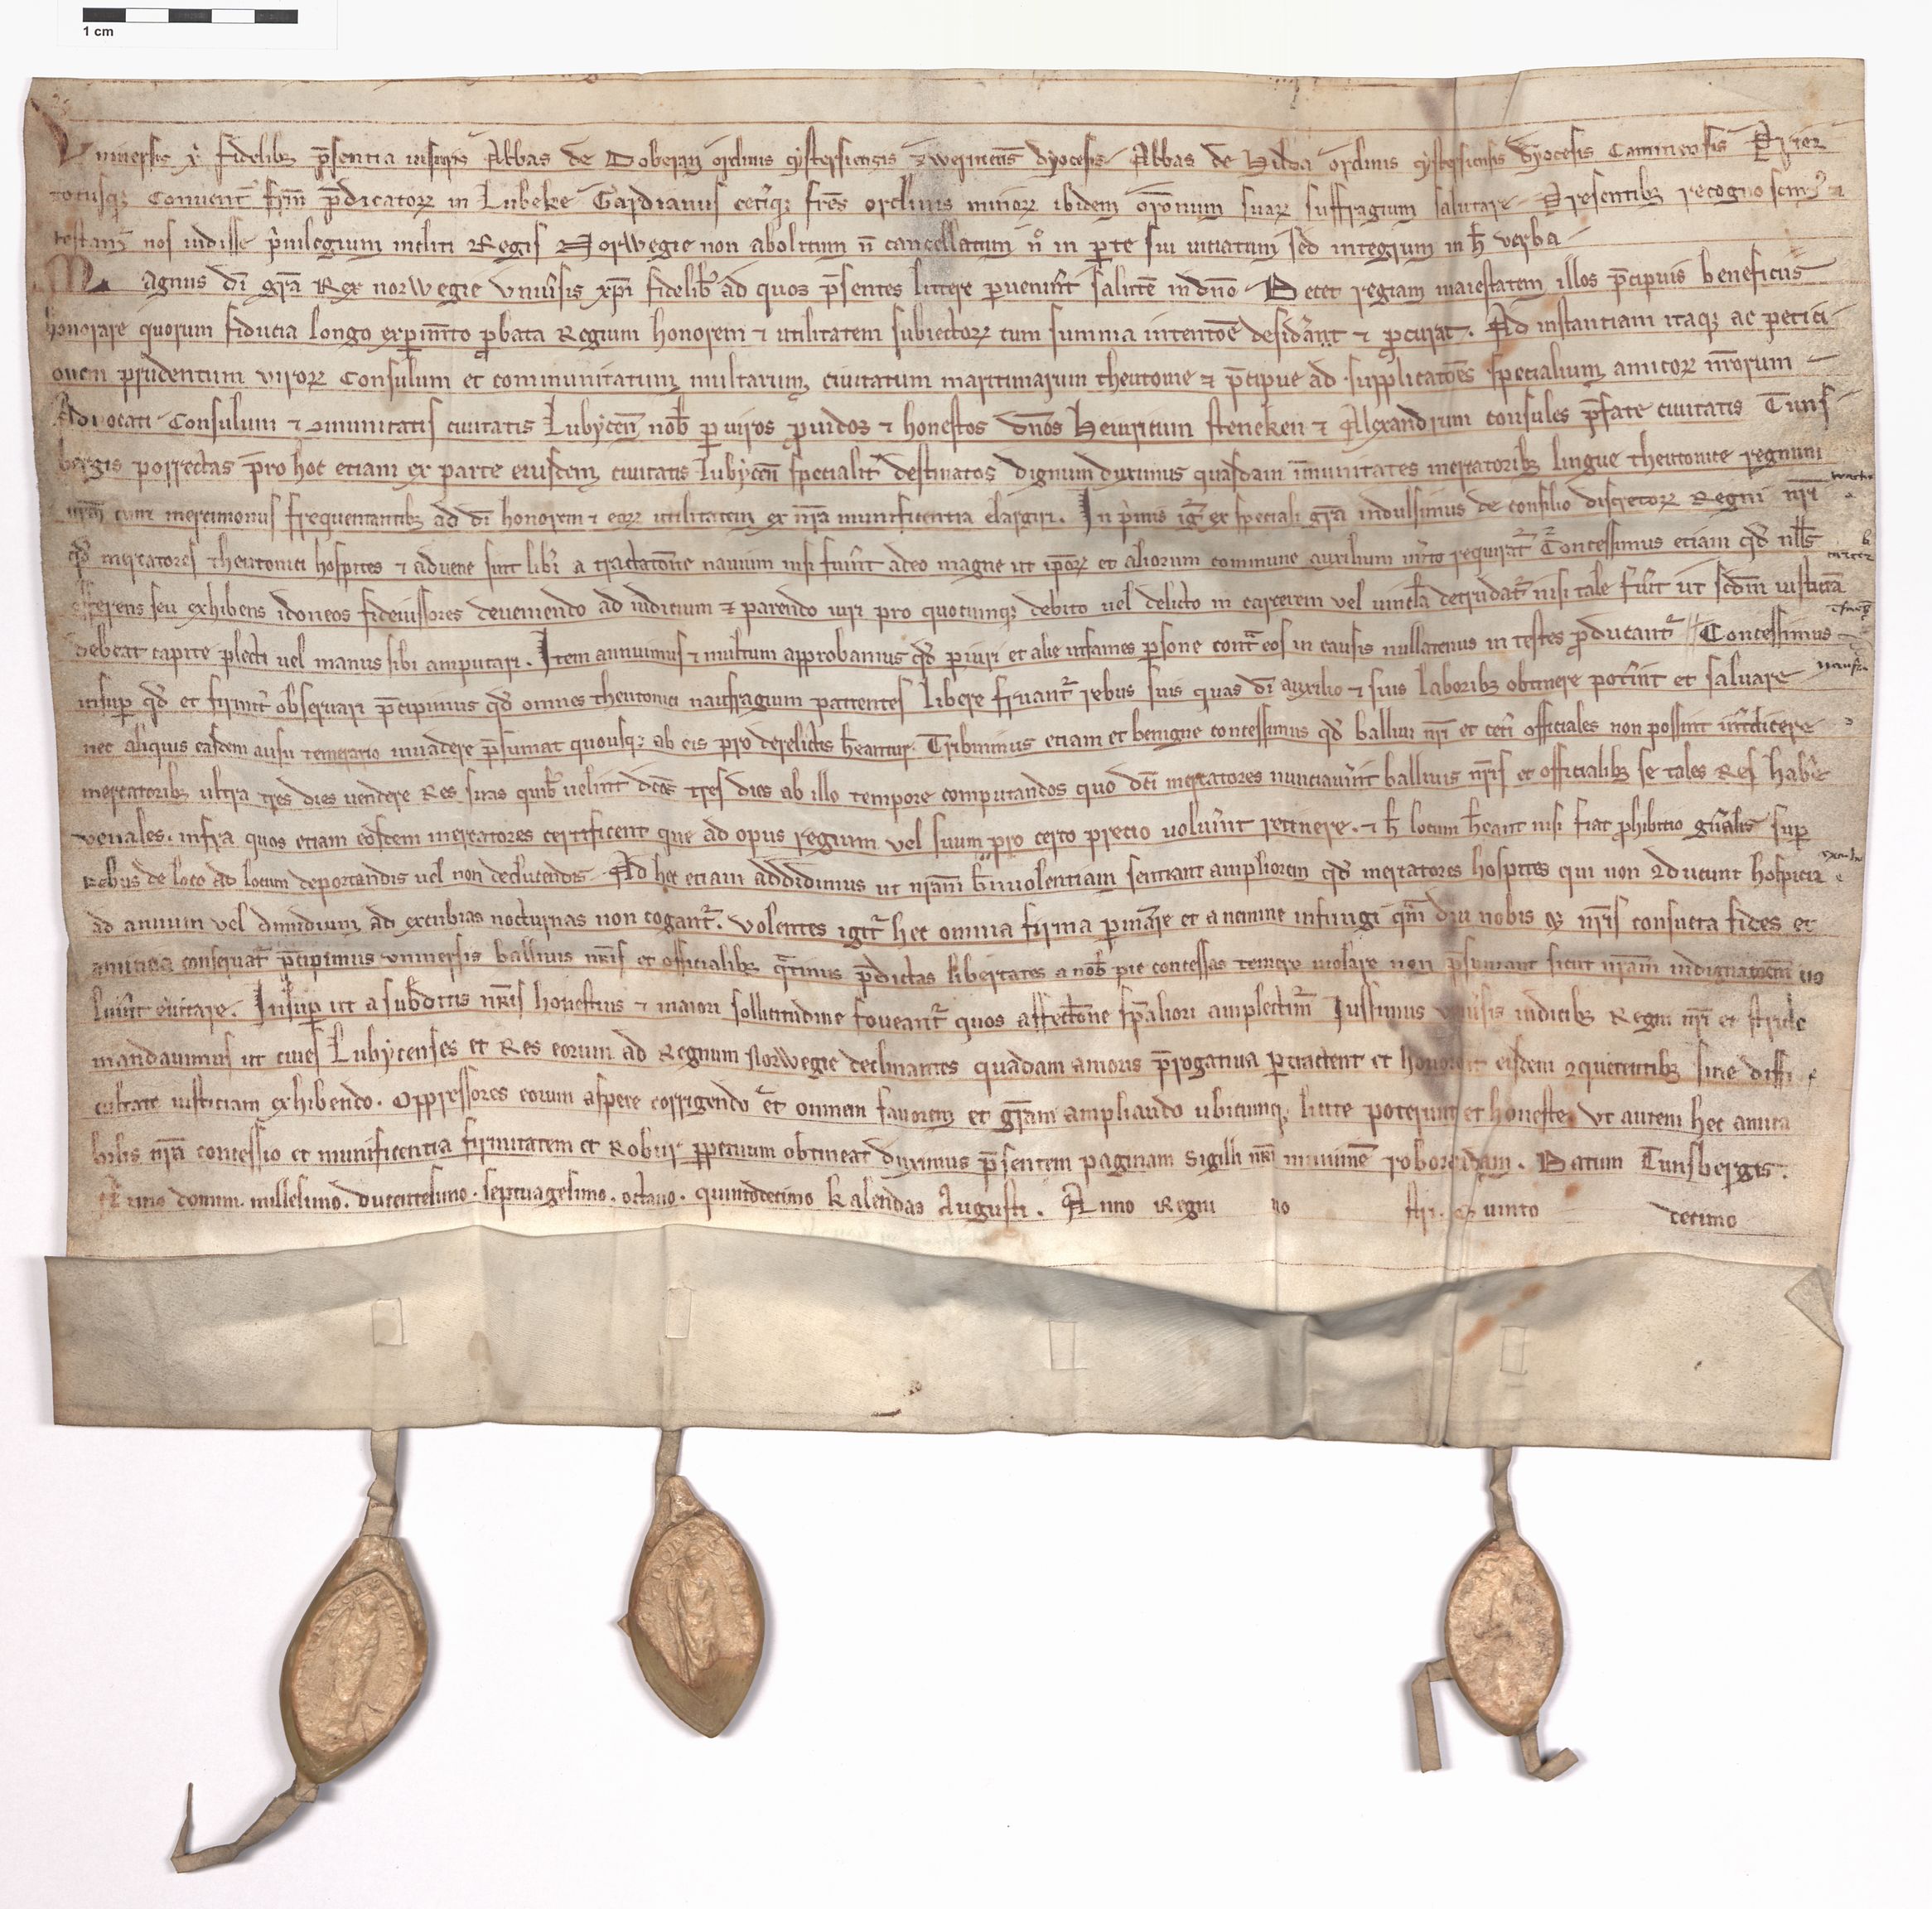 1 cm
Vniuersis xp̄i fidelibꝫ p̄sentia uisuris Abbas de Doberan ordinis cysterciensis zwerinens̄ dyocesis Abbas de Hilda ordinis cysterciensis dyocesis Caminensis Prior
totusqꝫ Conuent᷒ frm̄ p̄dicatorꝝ in Lubeke Gardianus cetiqꝫ fr̄es ordinis minorꝝ ibidem or̄onum suarꝝ suffragium salutare Presentibꝫ recognoscim᷒ ⁊
testam᷒ nos uidisse p̲uilegium incliti Regis Norwegie non abolitum n̄ cancellatum n̄ in parte sui uiciatum sed integrum in h̄ uerba
Magnus di᷑ gr̄a Rex norwegie vniūsis xp̄i fidelibꝫ ad quos p̄sentes littere peruenīnt salutē in dn̄o Decet regiam maiestatem illos p̄cipuis beneficiis
honorare quorum fiducia longo experim̄to probata Regium honorem ⁊ utilitatem subiectorꝝ cum summa intentōe desid̄ant ⁊ procurāt. Ad instantiam itaqꝫ ac petici
onem prudentum virorꝝ Consulum et communitatum multarum ciuitatum maritimarum theutonie ⁊ p̄cipue ad supplicatōes specialium amicorꝝ nr̄orum
Aduocati Consulum ⁊ ɔmunitatis ciuitatis Lubycen̄ nob̄ per uiros prouidos ⁊ honestos dn̄os Heinricum steneken ⁊ Alexandrum consules p̄fate ciuitatis Tuns
bergis porrectas pro hoc etiam ex parte eiusdem ciuitatis Lubycen̄ specialit̄ destinatos dignum duximus quasdam inmunitates mercatoribꝫ lingue theutonice regnum
nr̄m cum mercimoniis frequentantibꝫ ad di᷑ honorem ⁊ eorꝝ utilitatem ex nr̄a munificentia elargiri. In primis igr̄ ex speciali gr̄a indulsimus de consilio discretorꝝ Regni nr̄i
qd̄ mercatores theutonici hospites ⁊ aduene sint libi᷑ a tractatōne nauium nisi fuīnt adeo magne ut ip̄orꝝ et aliorum commune auxilium m̄ito requirāt᷒ Concessimus etiam qd̄ null᷒s
offerens seu exhibens idoneos fideiussores de ueniendo ad iudicium ⁊ parendo iuri pro quocunqꝫ debito uel delicto in carcerem vel uincl̄a detrudat᷒ nisi tale fuīt ut scd̄m iusticiā
debeat capite plecti uel manus sibi amputari. Item annuimus ⁊ multum approbamus qd̄ periuri et alie infames persone contᵃ eos in causis nullatenus in testes producant᷒ Concessimus
insuper qd̄ et firmit̄ obseruari p̄cipimus qd̄ omnes theutonici naufragium patientes libere fruant᷒ rebus suis quas di᷑ auxilio ⁊ suis laboribꝫ obtinere potīnt et saluare
nec aliquis easdem ausu temerario inuadere p̄sumat quousqꝫ ab eis pro derelictis h̄eantur. Tribuimus etiam et benigne concessimus qd̄ balliui nr̄i et ceti᷑ officiales non possint int̄dicere
mercatoribꝫ ultra tres dies uendere Res suas quibꝫ uelint dc̄os tres dies ab illo tempore computandos quo dc̄i mercatores nunciauīnt balliuis nr̄is et officialibꝫ se tales Res habēe
venales. infra quos etiam eosdem mercatores certificent que ad opus regium vel suum pro certo precio uoluīnt retinere. ⁊ h̄ locum h̄eant nisi fiat prohibitio gn̄alis super
Rebus de loco ad locum deportandis uel non deducendis. Ad hec etiam addidimus ut nr̄am b̄niuolentiam sentiant ampliorem qd̄ mercatores hospites qui non ɔducunt hospicia
ad annum vel dimidium ad excubias nocturnas non cogant᷒. Volentes igit᷒ hec omnia firma perman̄e et a nemine infringi qm̄ diu nobis ⁊ nr̄is consueta fides et
amicicia conseruāt᷒ p̄cipimus uniuersis balliuis nr̄is et officialibꝫ qᵃtinus p̄dictas libertates a nob̄ pie concessas temere uiolare non p̄sumant sicut nr̄am indignatōem uo
luīnt euitare. Insuper ut a subditis nr̄is honestius ⁊ maiori sollicitudine foueant᷒ quos affectōne sp̄aliori amplectim᷒ Iussimus vniūsis iudicibꝫ Regni nr̄i et stricte
mandauimus ut ciues Lubycenses et Res eorum ad Regnum Norwegie declinantes quadam amoris p̄rogatiua pertractent et honorent eisdem ɔquerentibꝫ sine diffi
cultate iusticiam exhibendo. Oppressores eorum aspere corrigendo et omnem fauorem et gr̄am ampliando ubicunqꝫ licite poterunt et honeste. Vt autem hec amica
bilis nr̄a concessio et munificentia firmitatem et Robur perpetuum obtineat duximus p̄sentem paginam sigilli nr̄i munimīe roborandam. Datum Tunsbergis.
Anno domini. millesimo. ducentesimo. septuagesimo. octauo. quintodecimo kalendas Augusti. Anno Regni no stri. Quinto decimo